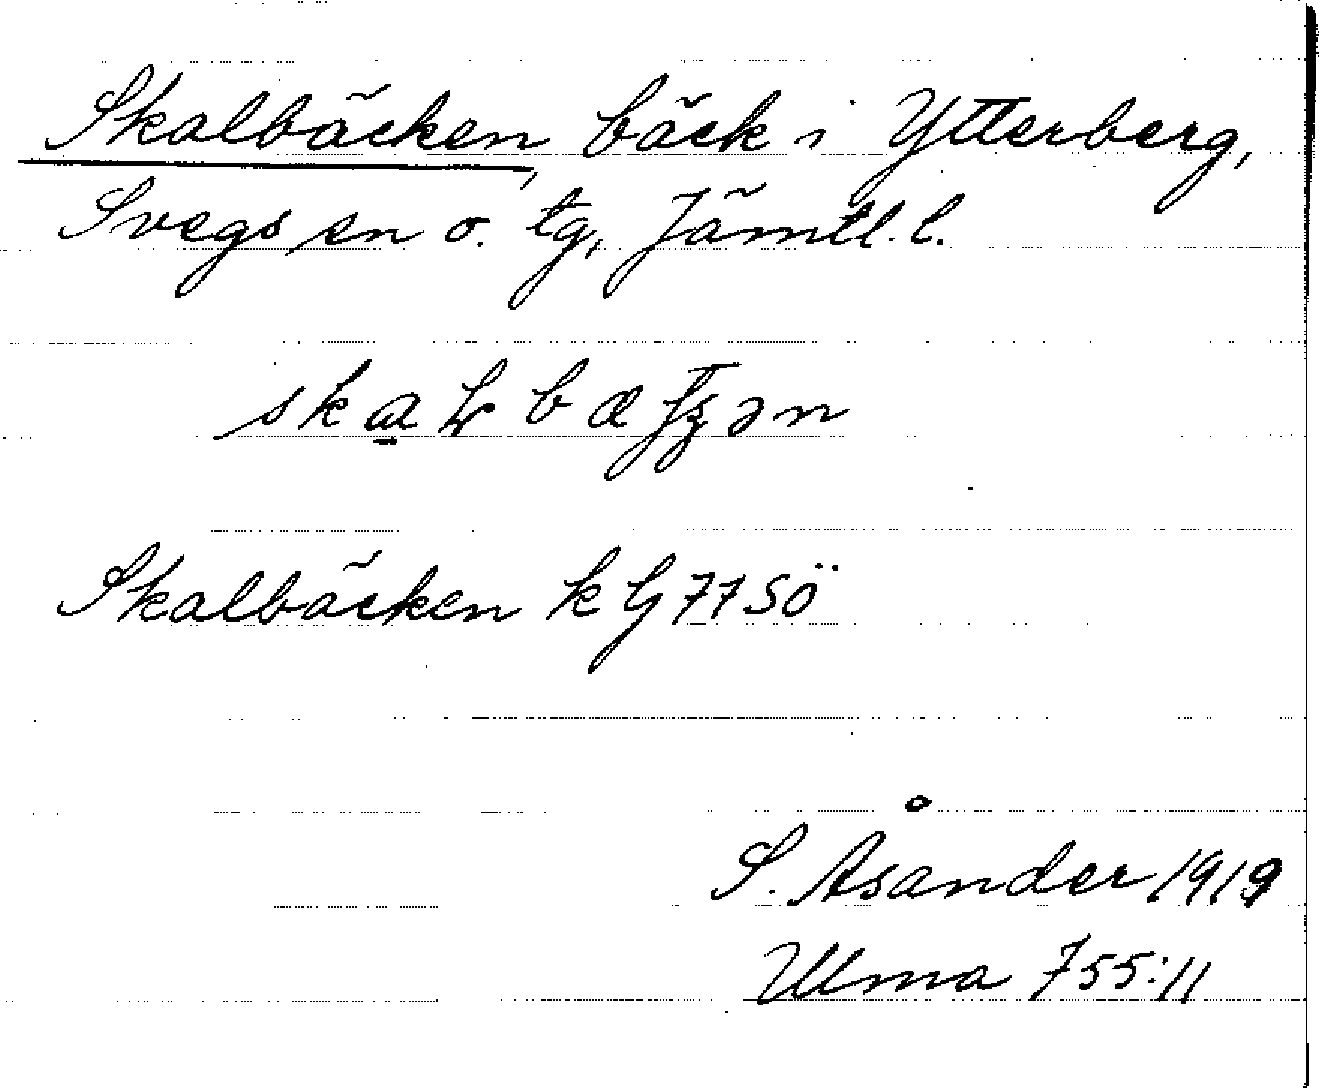 Skalbäcken, bäck i Ytterberg,
Svegs sn o. tg, Jämtl. l.
Skalbäcken k G 77 SÖ
S. Åsander 1919
Ulma 755:11